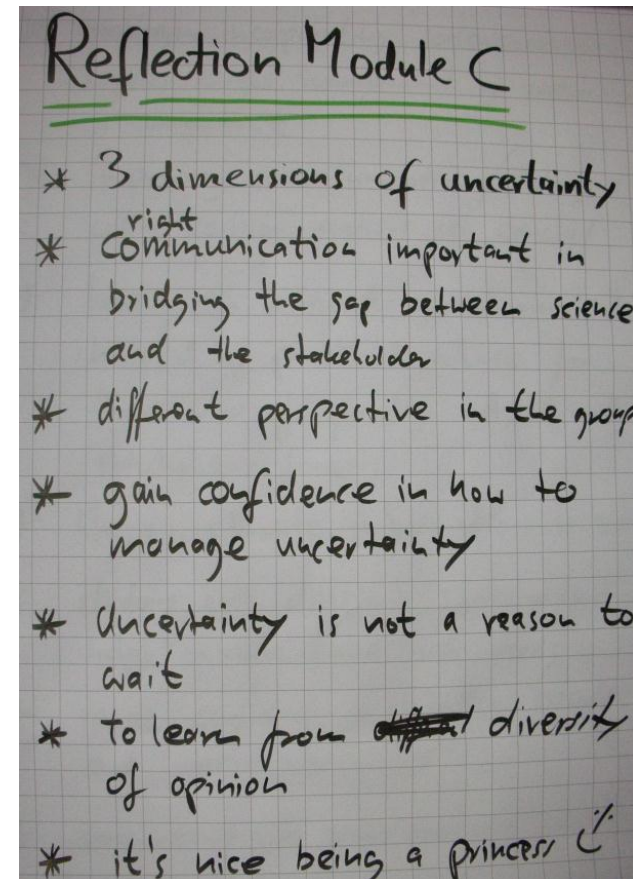 Reflection Module C
* 3 dimensions of uncertainty
right
* communication important in
bridging the gap between science
and the stakeholder
* different perspective in the group
* gain confidence in how to
manage uncertainty
* Uncertainty is not a reason to
wait
* to learn from diversity
of opinion
* it's nice being a princess